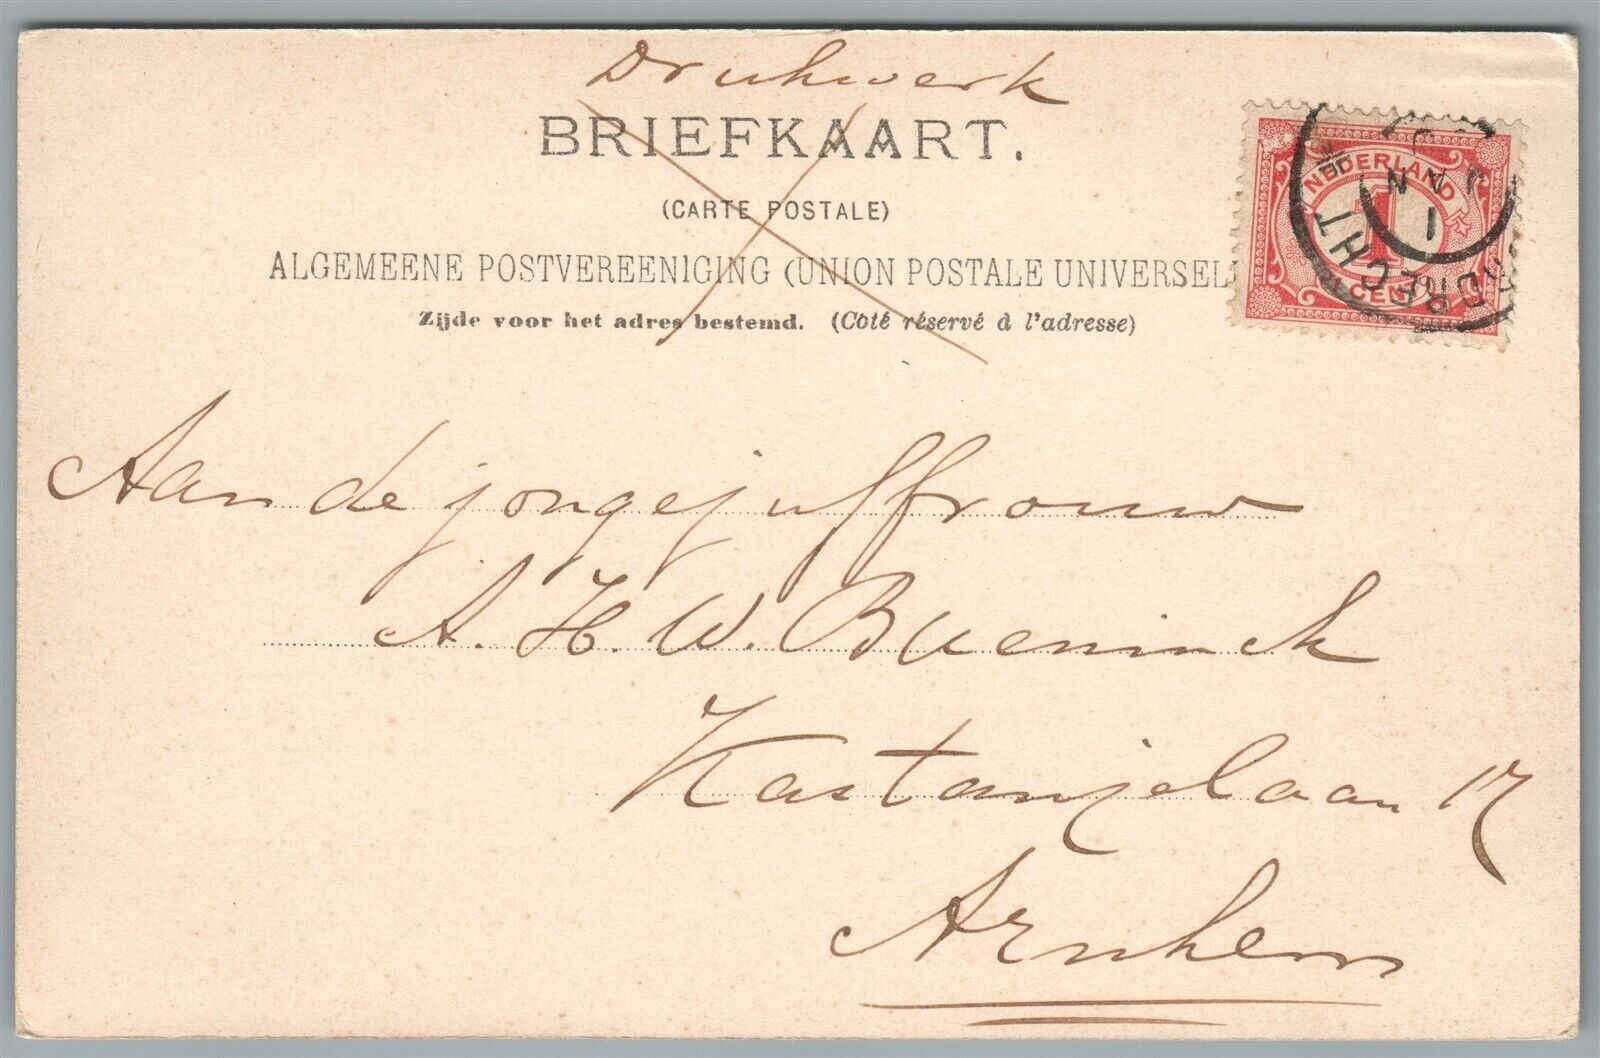 Drukwerk
BRIEFKAART.
(CARTE POSTALE)
ALGEMEENE POSTVEREENIGING (UNION POSTALE UNIVERSEL
Zijde voor het adres bestemd. (Côté réservé à l'adresse)
NEDERLAND
1
CENT
DRECHT
1 JAN
Aan de jongejuffrouw
A. H. W. Bueninck
Kastanjelaan 17
Arnhem